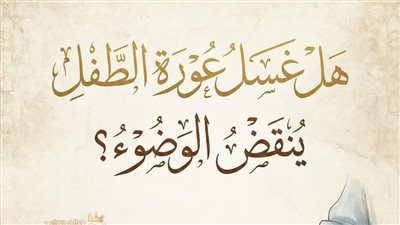 هَلْ غَسَلُ عُوْرَةِ الطَّفْلِ
يُنْقَضُ الْوَضُوْءُ؟